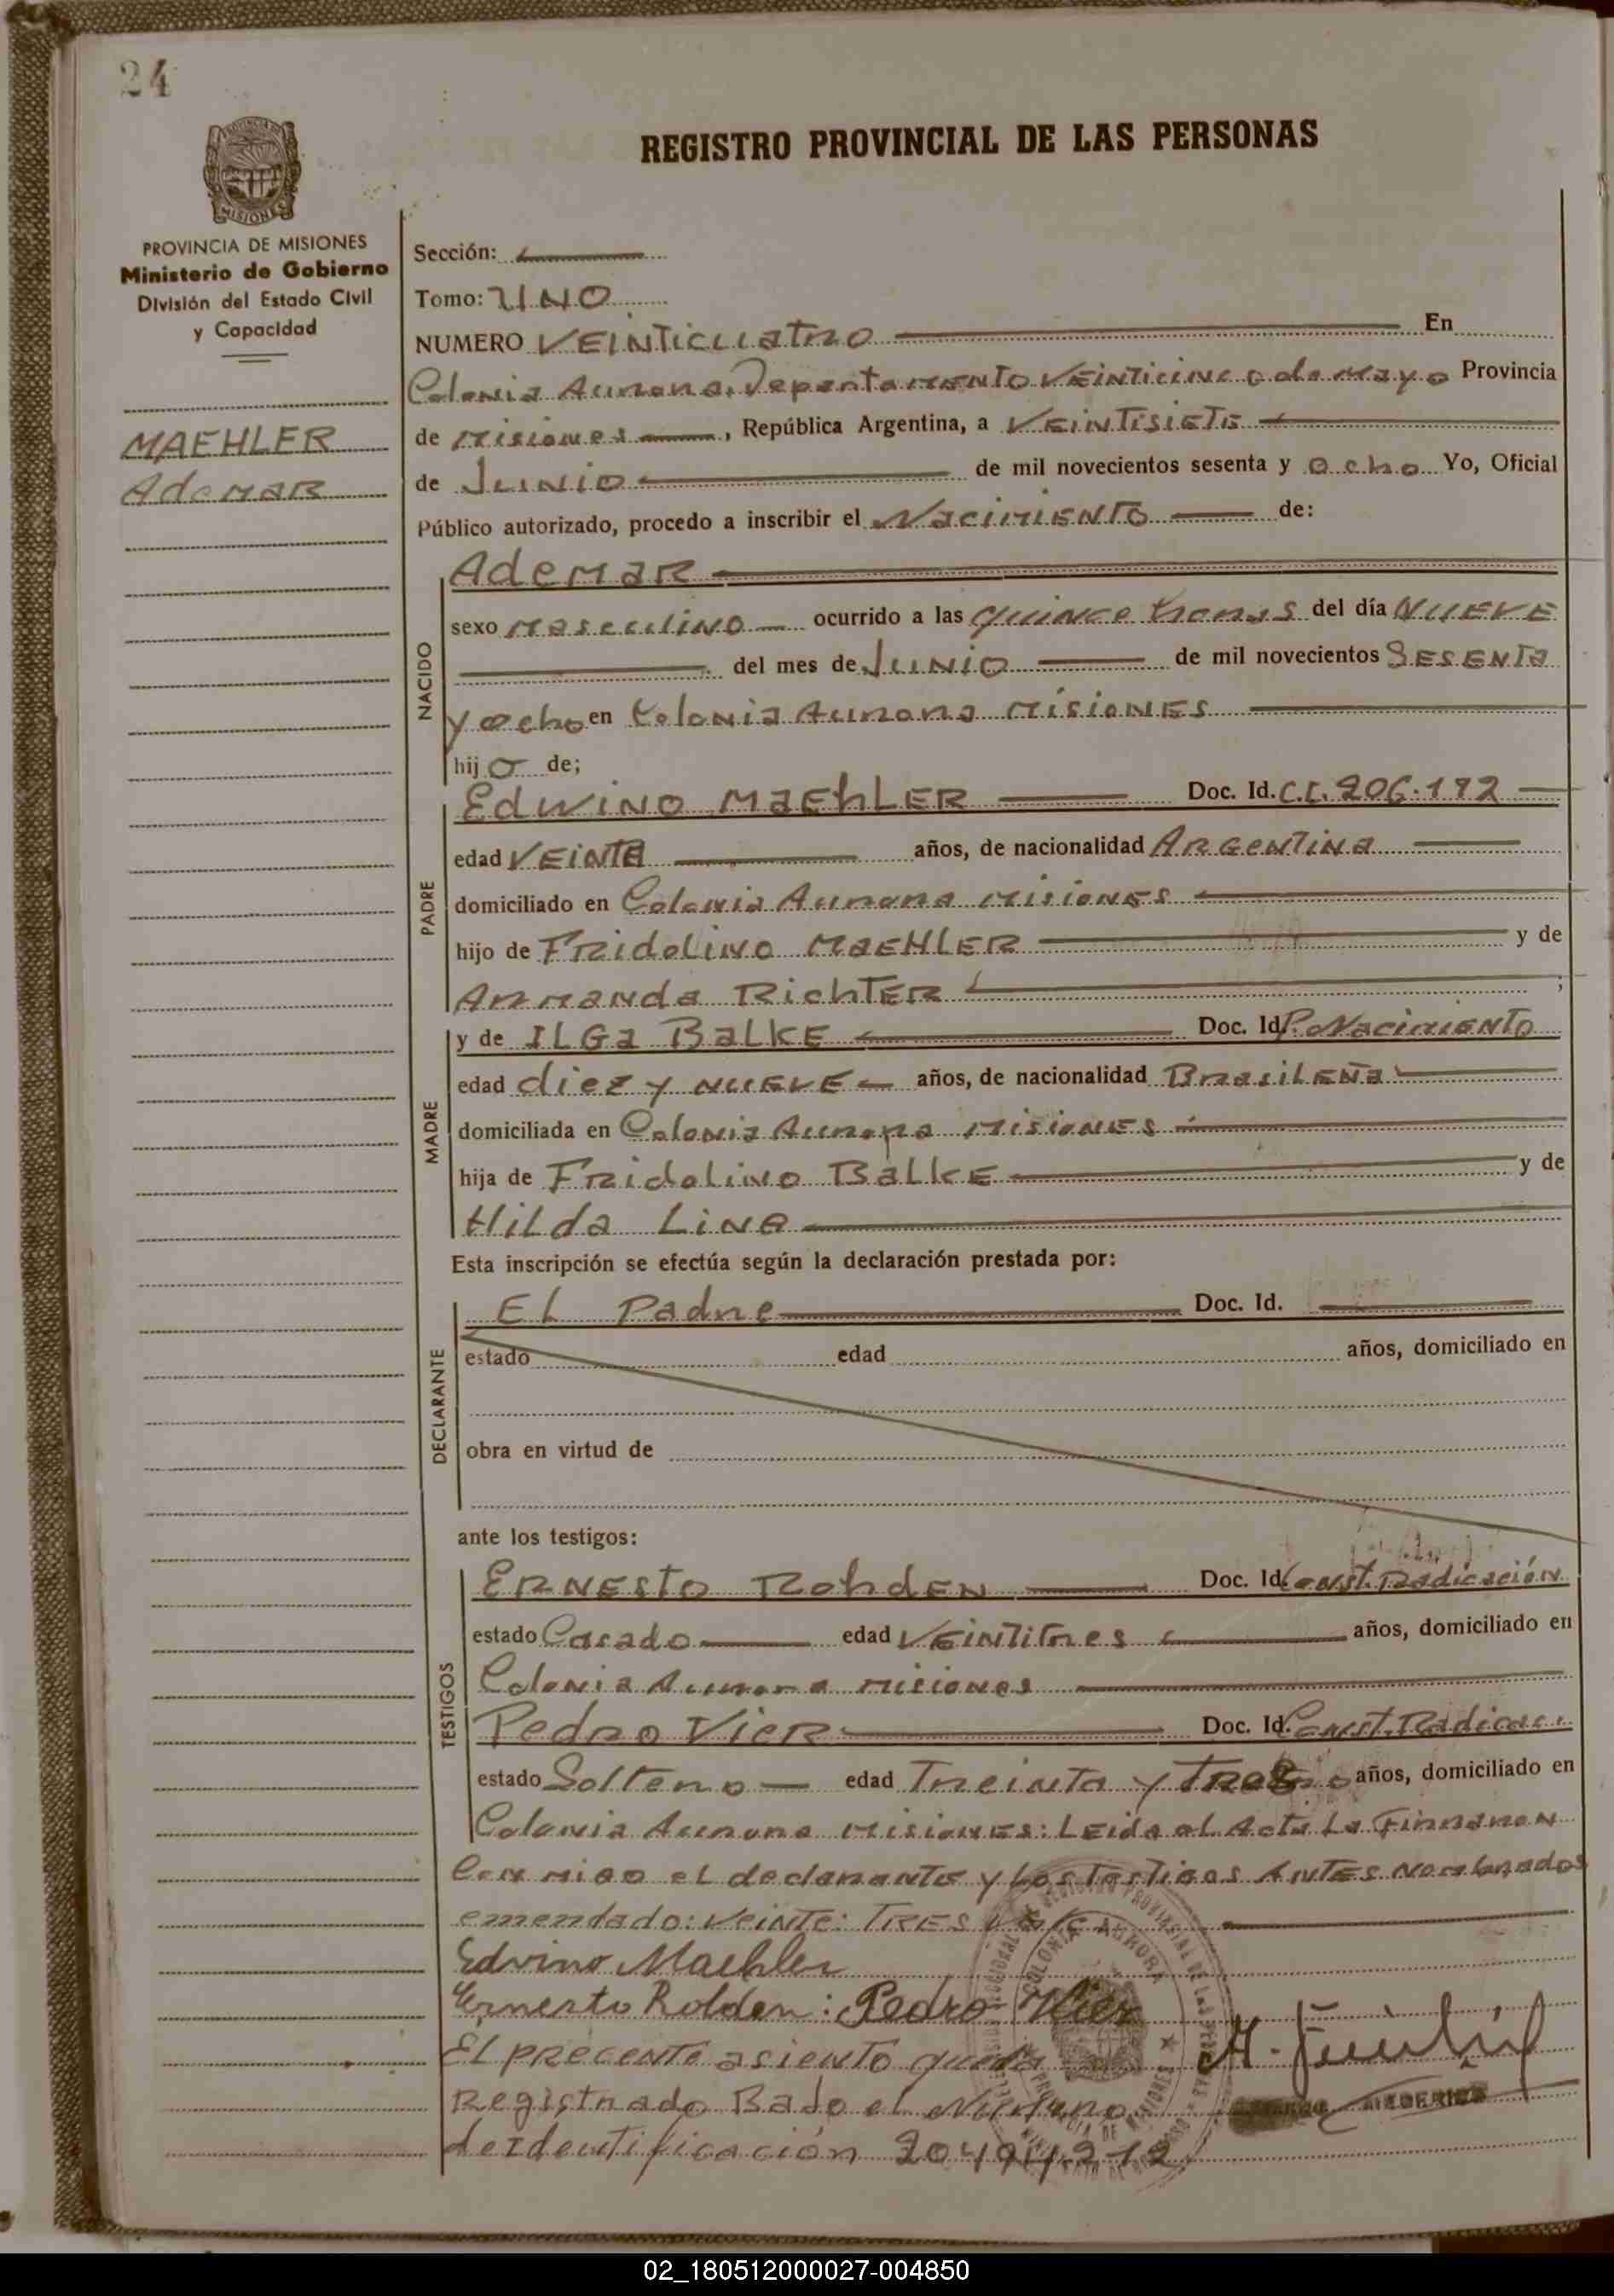 24
REGISTRO PROVINCIAL DE LAS PERSONAS
MISIONES
PROVINCIA DE MISIONES
Ministerio de Gobierno
División del Estado Civil
y Capacidad
MAEHLER
AdeMAR
Sección:
Tomo: UNO
NUMERO VEINTICUATRO En
Colonia Aurora, Departamento VEINTICINCO de Mayo Provincia
de Misiones, República Argentina, a VEINTISIETE
de JUNIO de mil novecientos sesenta y ocho Yo, Oficial
Público autorizado, procedo a inscribir el NACIMIENTO de:
NACIDO
AdeMAR
sexo Masculino ocurrido a las quince horas del día NUEVE
del mes de JUNIO de mil novecientos SESENTA
y ocho en Colonia Aurora MISIONES
hijo de;
PADRE
Edwino MAEhLER Doc. Id. C.I. 206.182
edad VEINTE años, de nacionalidad ARGENTINA
domiciliado en Colonia Aurora MISIONES
hijo de FRidoLiNO MaEHLER y de
ARMANda RichTER ;
MADRE
y de ILGa BaLKE Doc. Id P. Nacimiento
edad diez y NUEVE años, de nacionalidad BrasiLEÑa
domiciliada en Colonia Aurora MISIONES
hija de FRidolino BaLKE y de
HILda LiNa
Esta inscripción se efectúa según la declaración prestada por:
DECLARANTE
EL Padre Doc. Id.
estado edad años, domiciliado en
obra en virtud de
ante los testigos:
TESTIGOS
ERNESTO RohdEN Doc. Id. Const. Radicación
estado Casado edad VEINTITRES años, domiciliado en
Colonia Aurora Misiones
Pedro ViER Doc. Id. Const. Radicac.
estado Soltero edad Treinta y TRES años, domiciliado en
Colonia Aurora MISIONES: Leida el Acta La Firmaron
Conmigo el declarante y Los Testigos ANTES Nombrados
emendado: VEINTE: TRES Vale
Edvino Maehler
Ernesto Rohden: Pedro Vier
EL PRECENTE asiento queda
Registrado Bajo el Número
de Identificación
COLONIA AURORA
PROVINCIA DE MISIONES
02_180512000027-004850